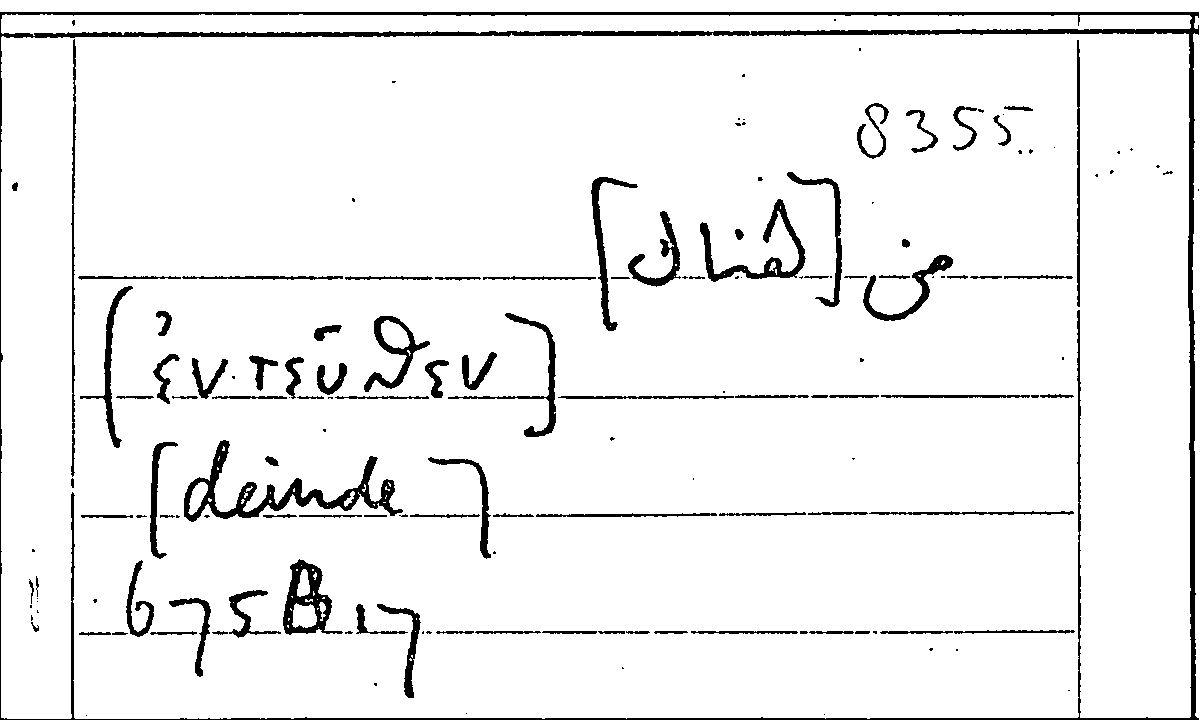 8355
من [هناك]
(ἐντεῦθεν]
[deinde]
675B17